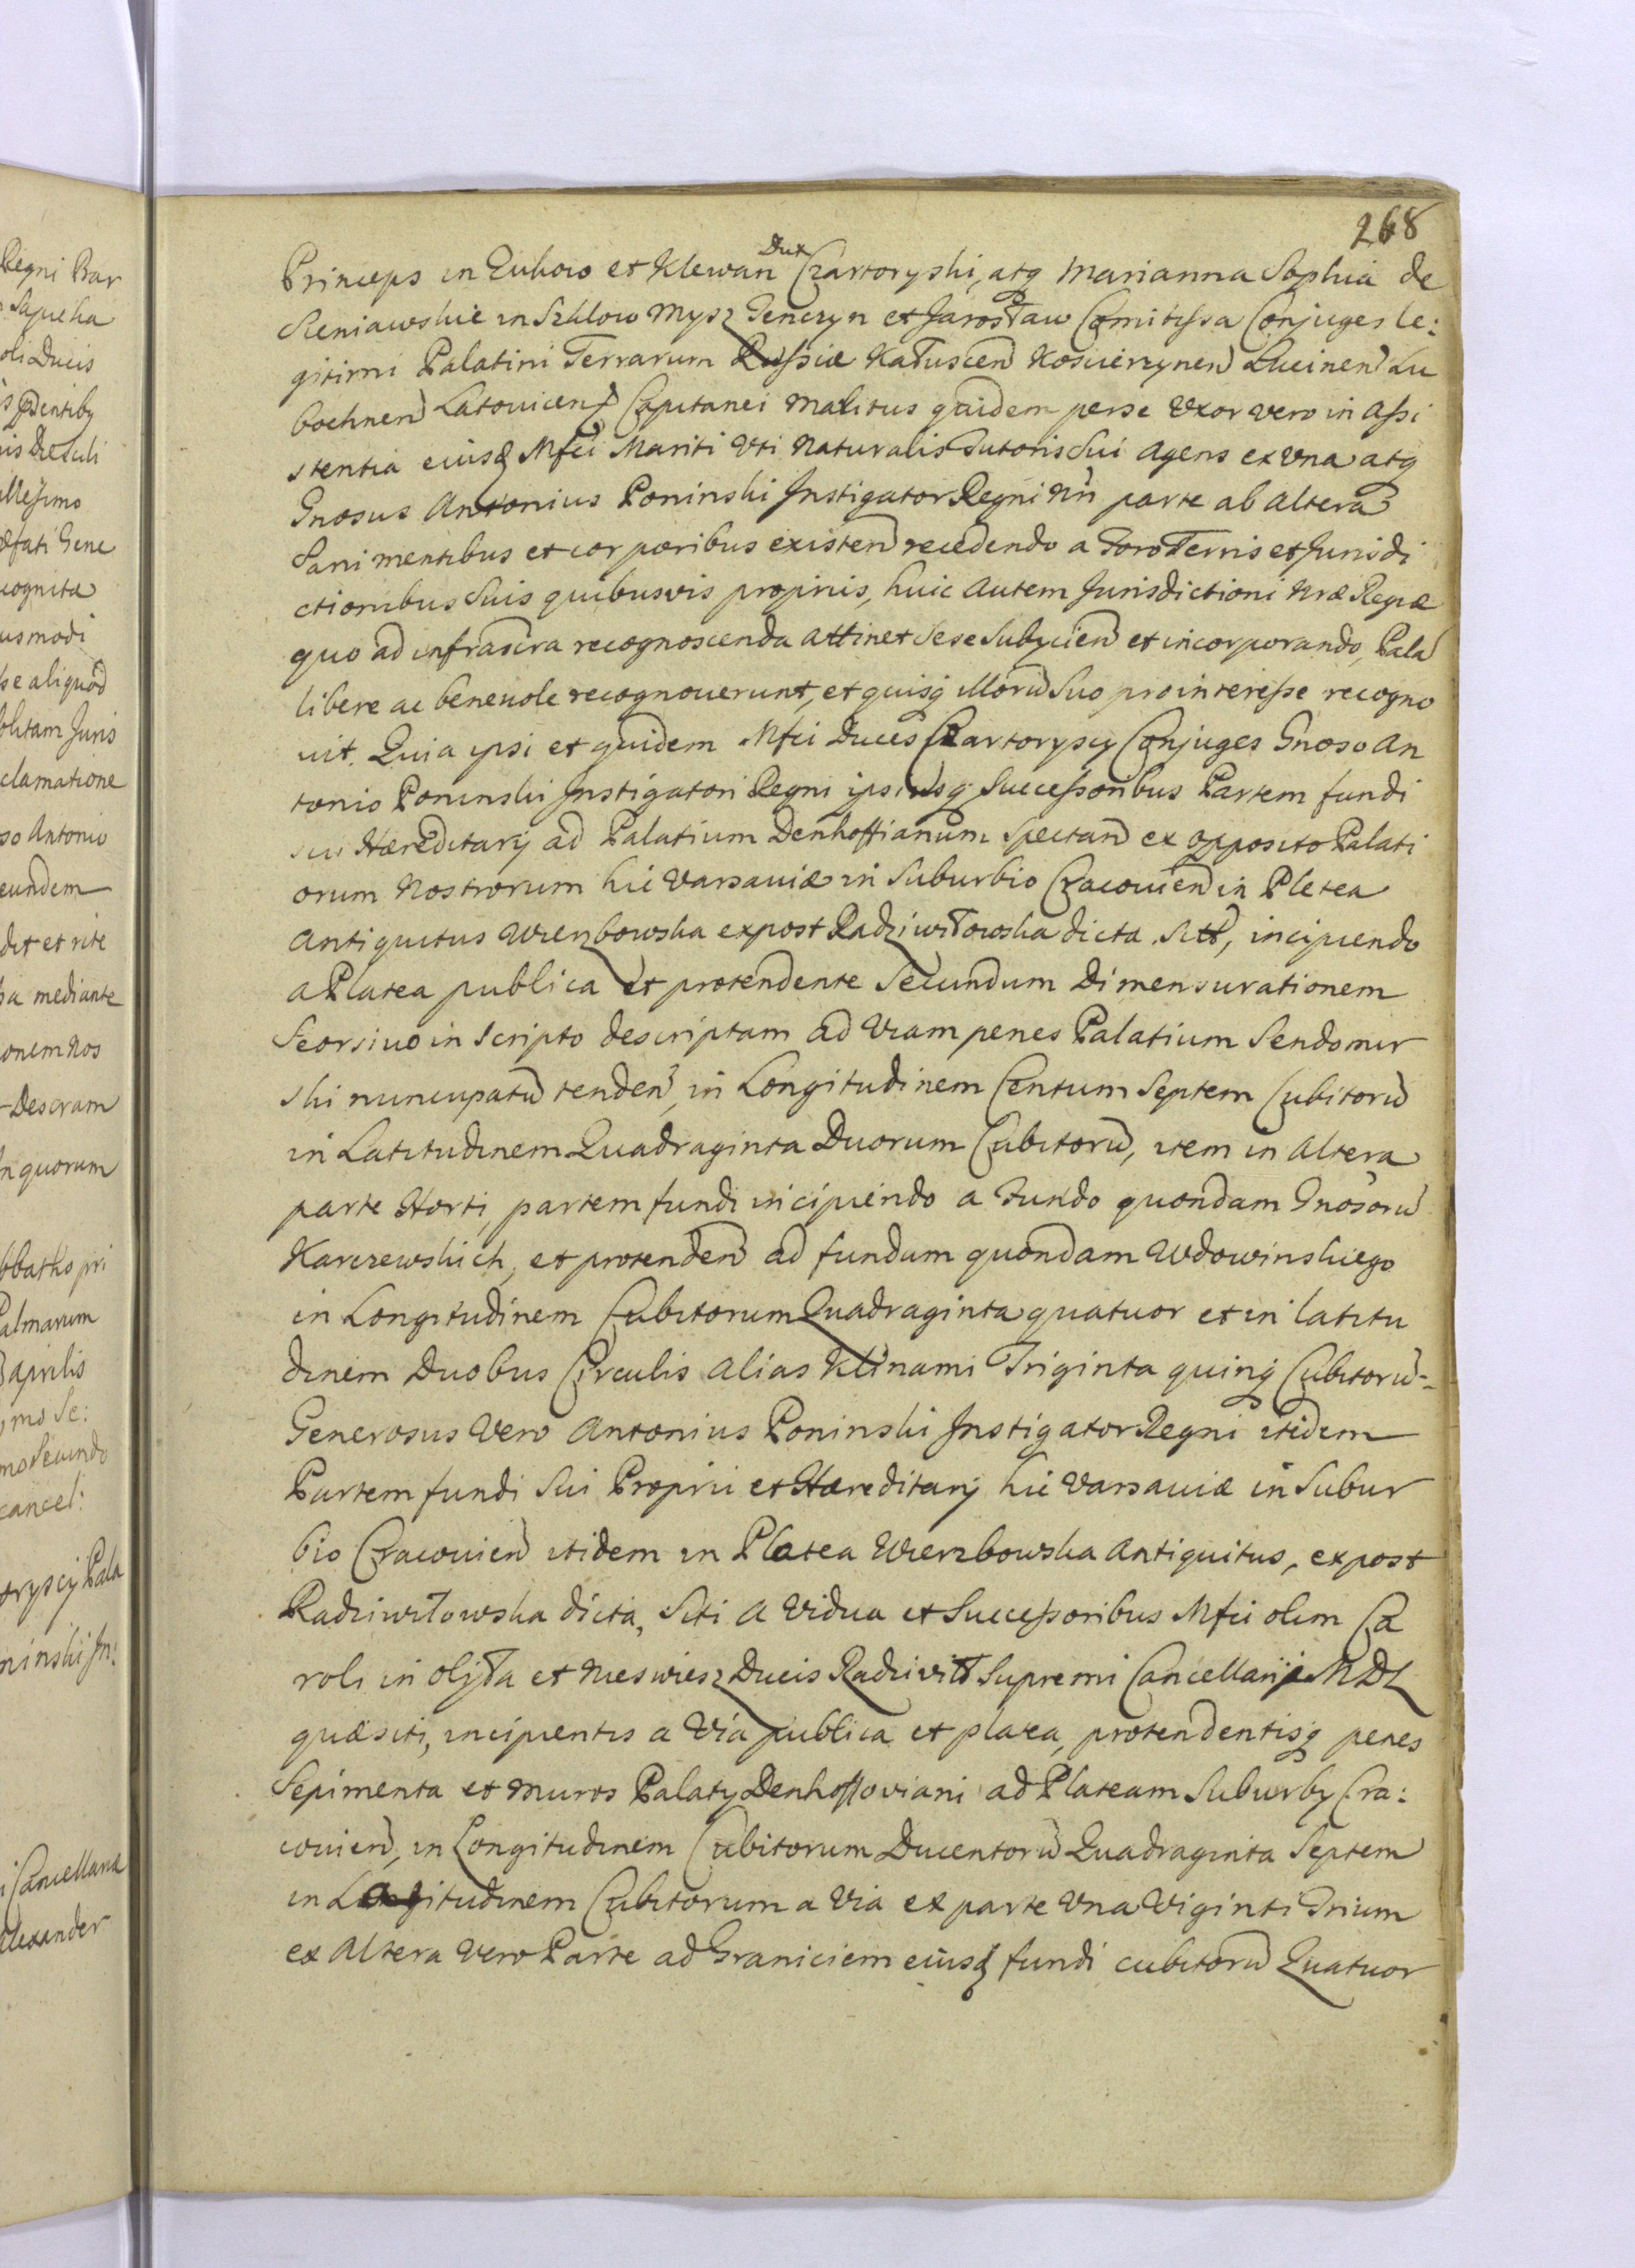 268
Princeps in Zukow et Klewan Dux Czartoryski, atq Marianna Sophia de
Sieniawskie in Szklow Mysz Tenczyn et Jarosław Comitissa Conjuges le:
gitimi Palatini Terrarum Russiæ Kałuscen Koscierzynen Lucinen Lu
bochnen Latovicen Capitanei Maritus quidem per se Uxor vero in Assi
stentia eiusd Mfci Mariti Uti Naturalis Tutoris Sui Agens ex Una atq
Gnosus Antonius Poninski Instigator Regni Nri parte ab Altera
Sani mentibus et corporibus existen recedendo a Foro Terris et Jurisdi
ctionibus Suis quibusvis propriis, huic Autem Jurisdictioni Nræ Regiæ
quo ad infrascra recognoscenda Attinet Sese Subycien et incorporando, Pala
libere ac benevole recognoverunt, et quisq illorũ Suo pro interesse recogno
vit. Quia ipsi et quidem Mfci Duces Czartoryscy Conjuges Gnoso An
tonio Poninski Instigatori Regni ipsiusq Successoribus Partem fundi
sui Hæreditarij ad Palatium Denhoffianum Spectan ex opposito Palati
orum Nostrorum hic Varsaviæ in Suburbio Cracovien in Pletea
Antiquitus Wierzbowska expost Radziwiłowska dicta Siti, incipiendo
a Platea publica et protendente Secundum Dimensurationem
Seorsivo in Scripto descriptam ad Viam penes Palatium Sendomir
ski nuncupatũ tenden, in Longitudinem Centum Septem Cubitorũ
in Latitudinem Quadraginta Duorum Cubitorũ, item in Altera
parte Horti, partem fundi incipiendo a Fundo quondam Gnosorũ
Karczewskich, et protenden ad fundum quondam Wdowinskiego
in Longitudinem Cubitorum Quadraginta quatuor et in latitu
dinem Duobus Circulis Alias Klinami Triginta quinq Cubitorũ-
Generosus Vero Antonius Poninski Instigator Regni itidem
Partem fundi Sui Proprii et Hæreditarij hic Varsaviæ in Subur
bio Cracovien itidem in Platea Wierzbowska Antiquitus, expost
Radziwiłowska dicta, Siti A Vidua et Successoribus Mfci olim Ca
roli in Olyka et Nieswiesz Ducis Radziwił Supremi Cancellarij MDL
quæsiti, incipientis a Via publica et platea, protendentisq penes
Sepimenta et muros Palaty Denhoffoviani ad Plateam Suburby Cra:
covien, in Longitudinem Cubitorum Ducentorũ Quadraginta Septem
in Longitudinem Cubitorum a Via ex parte Una Viginti Trium
ex Altera Vero Parte ad Graniciem eiusd fundi cubitorũ Quatuor